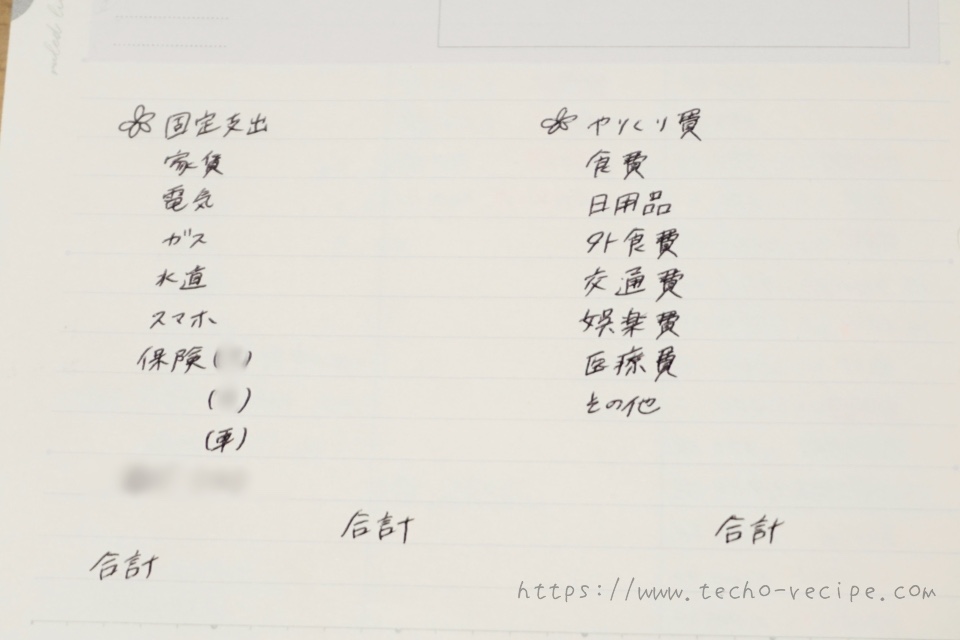 固定支出
家賃
電気
ガス
水道
スマホ
保険( )
( )
(車)
合計
合計
やりくり費
食費
日用品
外食費
交通費
娯楽費
医療費
その他
合計
https://www.techo-recipe.com